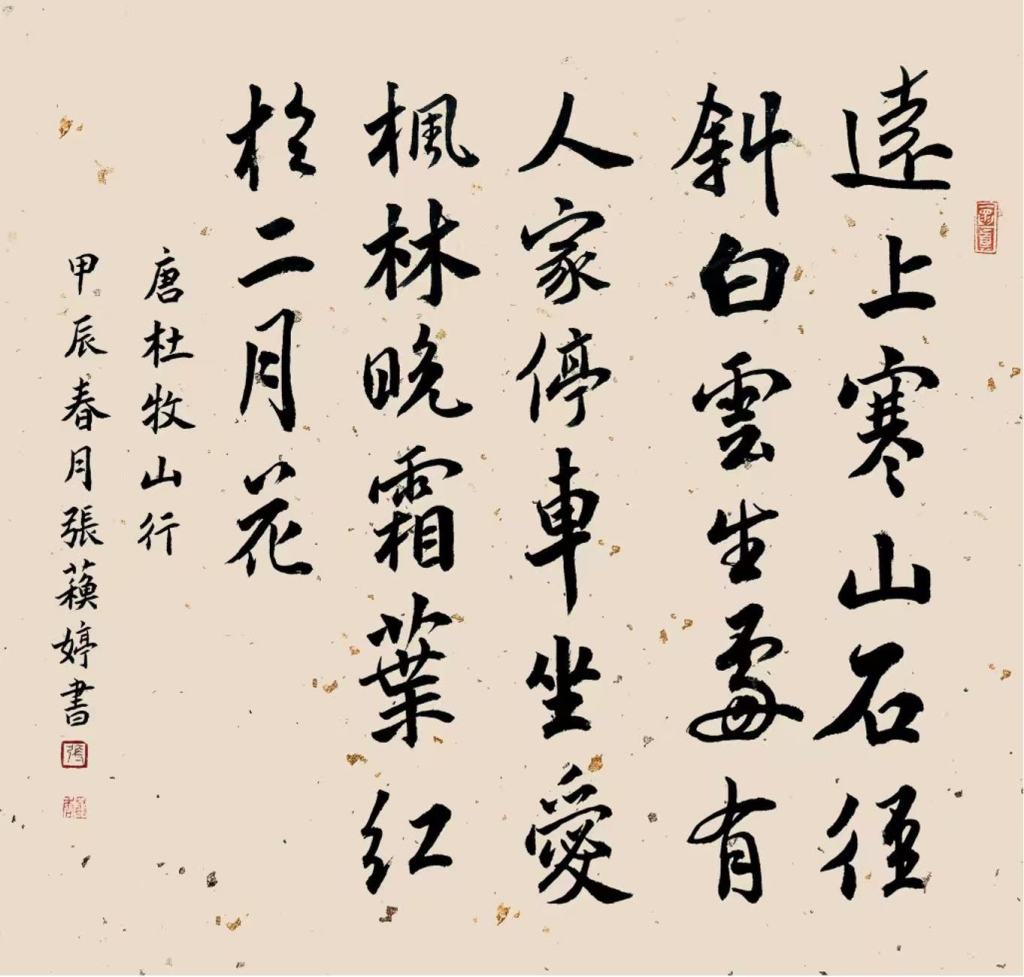 遠上寒山石徑
斜白雲生處有
人家停車坐愛
楓林晚霜葉紅
於二月花
唐杜牧山行
甲辰春月張蘋婷書
張